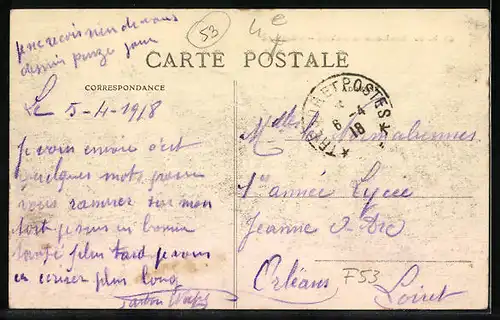 je ne recois rien de vous
depuis quinze jour
53
CARTE POSTALE
CORRESPONDANCE
Le 5-4-1918
je vous envoie c'est
quelques mots pour
vous rassurer sur mon
sort je suis en bonne
santé plus tard je vous
en ecrirer plus long
TRESOR ET POSTES
6-4
18
Melles les Normaliennes
1ere année Lycée
Jeanne d'Arc
Orléans
F53
Loiret